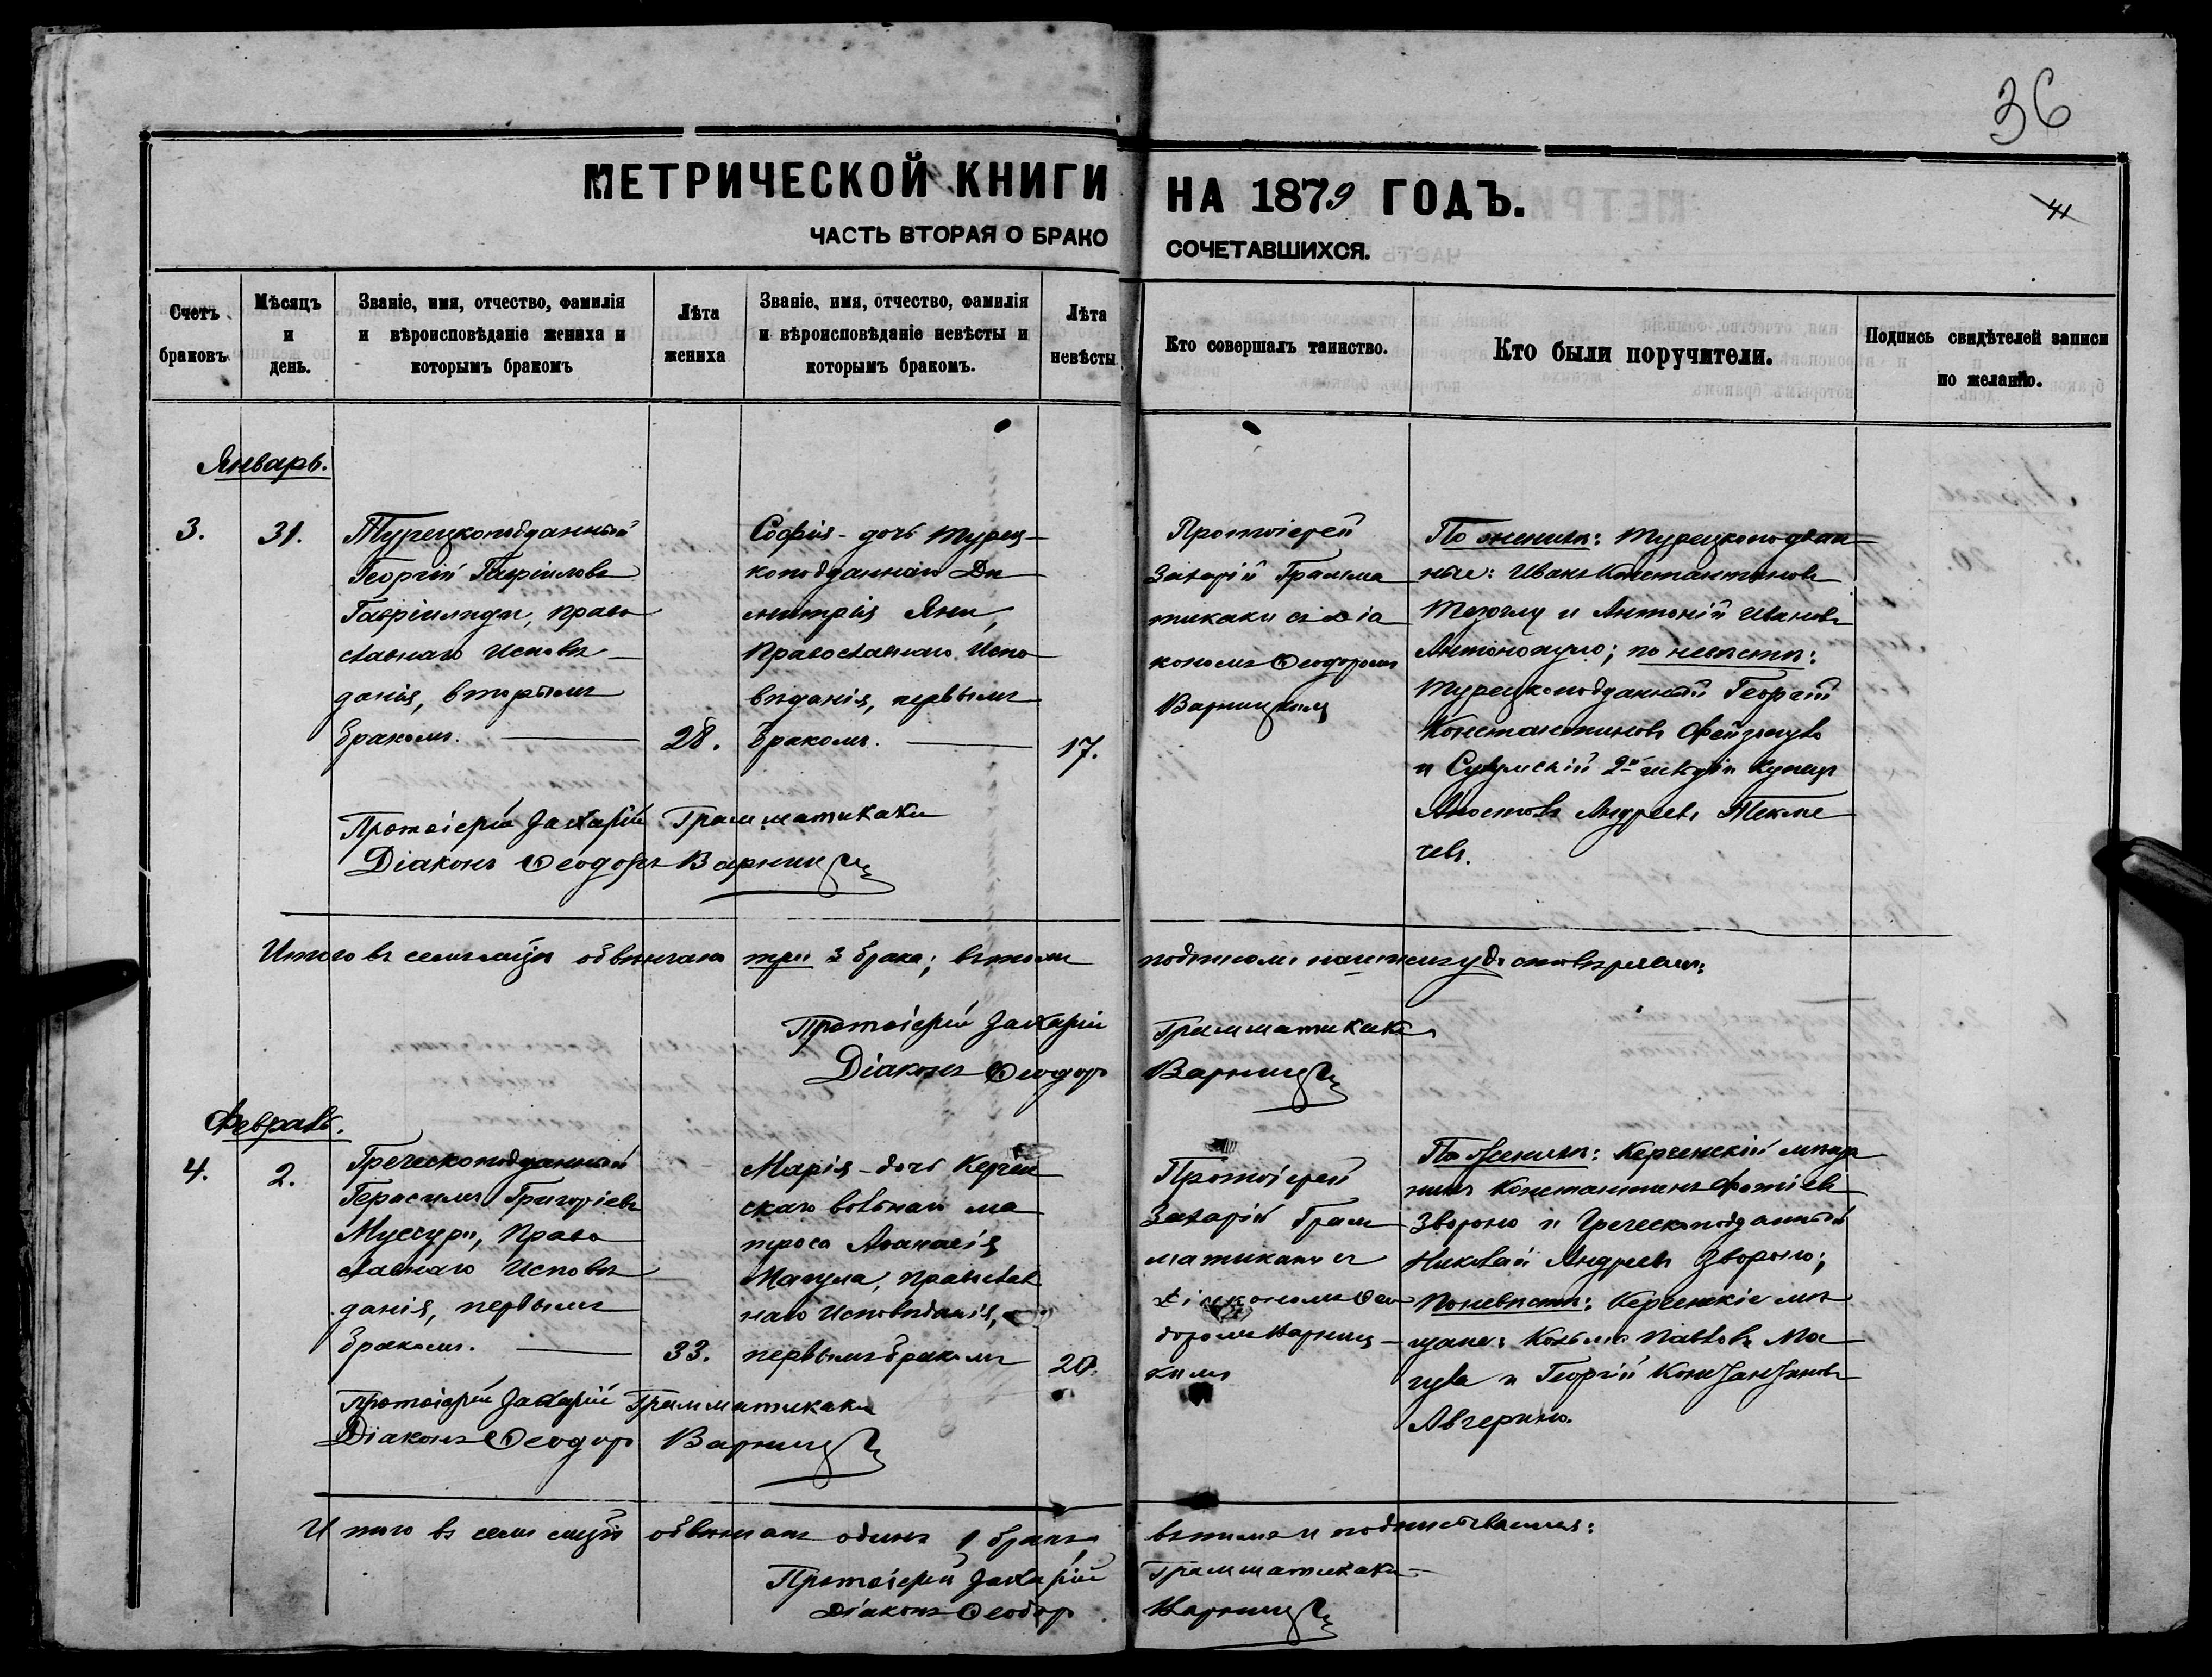 36
МЕТРИЧЕСКОЙ КНИГИ НА 1879 ГОДЪ.
41
ЧАСТЬ ВТОРАЯ О БРАКО СОЧЕТАВШИХСЯ.
Счетъ браковъ.
Мѣсяцъ и день.
Званіе, имя, отчество, фамилія
и вѣроисповѣданіе жениха и
которымъ бракомъ
Лѣта жениха
Званіе, имя, отчество, фамилія
и вѣроисповѣданіе невѣсты и
которымъ бракомъ.
Лѣта невѣсты
Кто совершалъ таинство.
Кто были поручители.
Подпись свидѣтелей записи
по желанію.
Январь.
3.
31.
Турецкоподданный
Георгій Гавріиловъ
Гавріилиди, право
славнаго исповѣ
данія, вторымъ
бракомъ.
28.
Софія - дочь турец-
коподданнаго Ди
митрія Яни,
православнаго испо
вѣданія, первымъ
бракомъ.
17.
Протоіерей
Захарій Грамма
тикаки съ діа
кономъ Ѳеодоромъ
По женихѣ: турецкоподдан
ные: Иванъ Константиновъ
и Антоній Ивановъ
Антонопуло; по невѣстѣ:
турецкоподданный Георгій
Константиновъ
и Сухумскій 2й гильдіи купецъ
Апостолъ Андреевъ Текме
чевъ.
Протоіерей Захарій Грамматикаки
Діаконъ Ѳеодоръ Варницкій
Итого въ семъ мѣсяцѣ обвѣнчано три 3 брака; въ томъ
Протоіерей Захарій Грамматикаки
Діаконъ Ѳеодоръ Варницкій
Февраль.
4.
2.
Греческоподданный
Герасимъ Григоріевъ
Муссури, право
славнаго исповѣ
данія, первымъ
бракомъ.
33.
Марія - дочь Керчен
скаго вольнаго ма
троса Аѳанасія
Магула, православ
наго исповѣданія,
первымъ бракомъ
20.
Протоіерей
Захарій Грам
матикаки съ
діакономъ Ѳео
доромъ Варниц-
кимъ
По женихѣ: Керченскій мѣща
нинъ Константинъ Фотіевъ
Звороно и Греческоподданный
Николай Андреевъ Звороно;
По невѣстѣ: Керченскіе мѣ
щане: Козьма Павловъ Ма
гула и Георгій Константиновъ
Авгерино.
Протоіерей Захарій Грамматикаки
Діаконъ Ѳеодоръ Варницкій
Итого въ семъ мѣсяцѣ обвѣнчанъ одинъ 1 бракъ, въ томъ и подписываемся:
Протоіерей Захарій Грамматикаки
Діаконъ Ѳеодоръ Варницкій